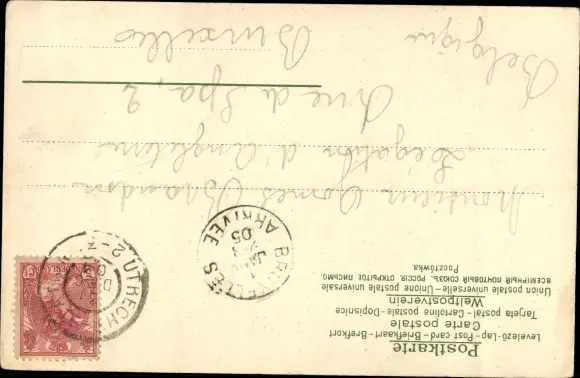 Postkarte
Levelező-Lap - Post card - Briefkaart - Brefkort
Carte postale
Tarjeta postal - Cartolina postale - Dopisnice
Weltpostverein
Union postale universelle - Unione postale universale
ВСЕМІРНЫЙ ПОЧТОВЫЙ СОЮЗЪ. РОССІЯ. ОТКРЫТОЕ ПИСЬМО.
Pocztówka.
UTRECHT
BRUXELLES
ARRIVEE
05
Monsieur
Légation d'Angleterre
rue de Spa, 2
Bruxelles
Belgique